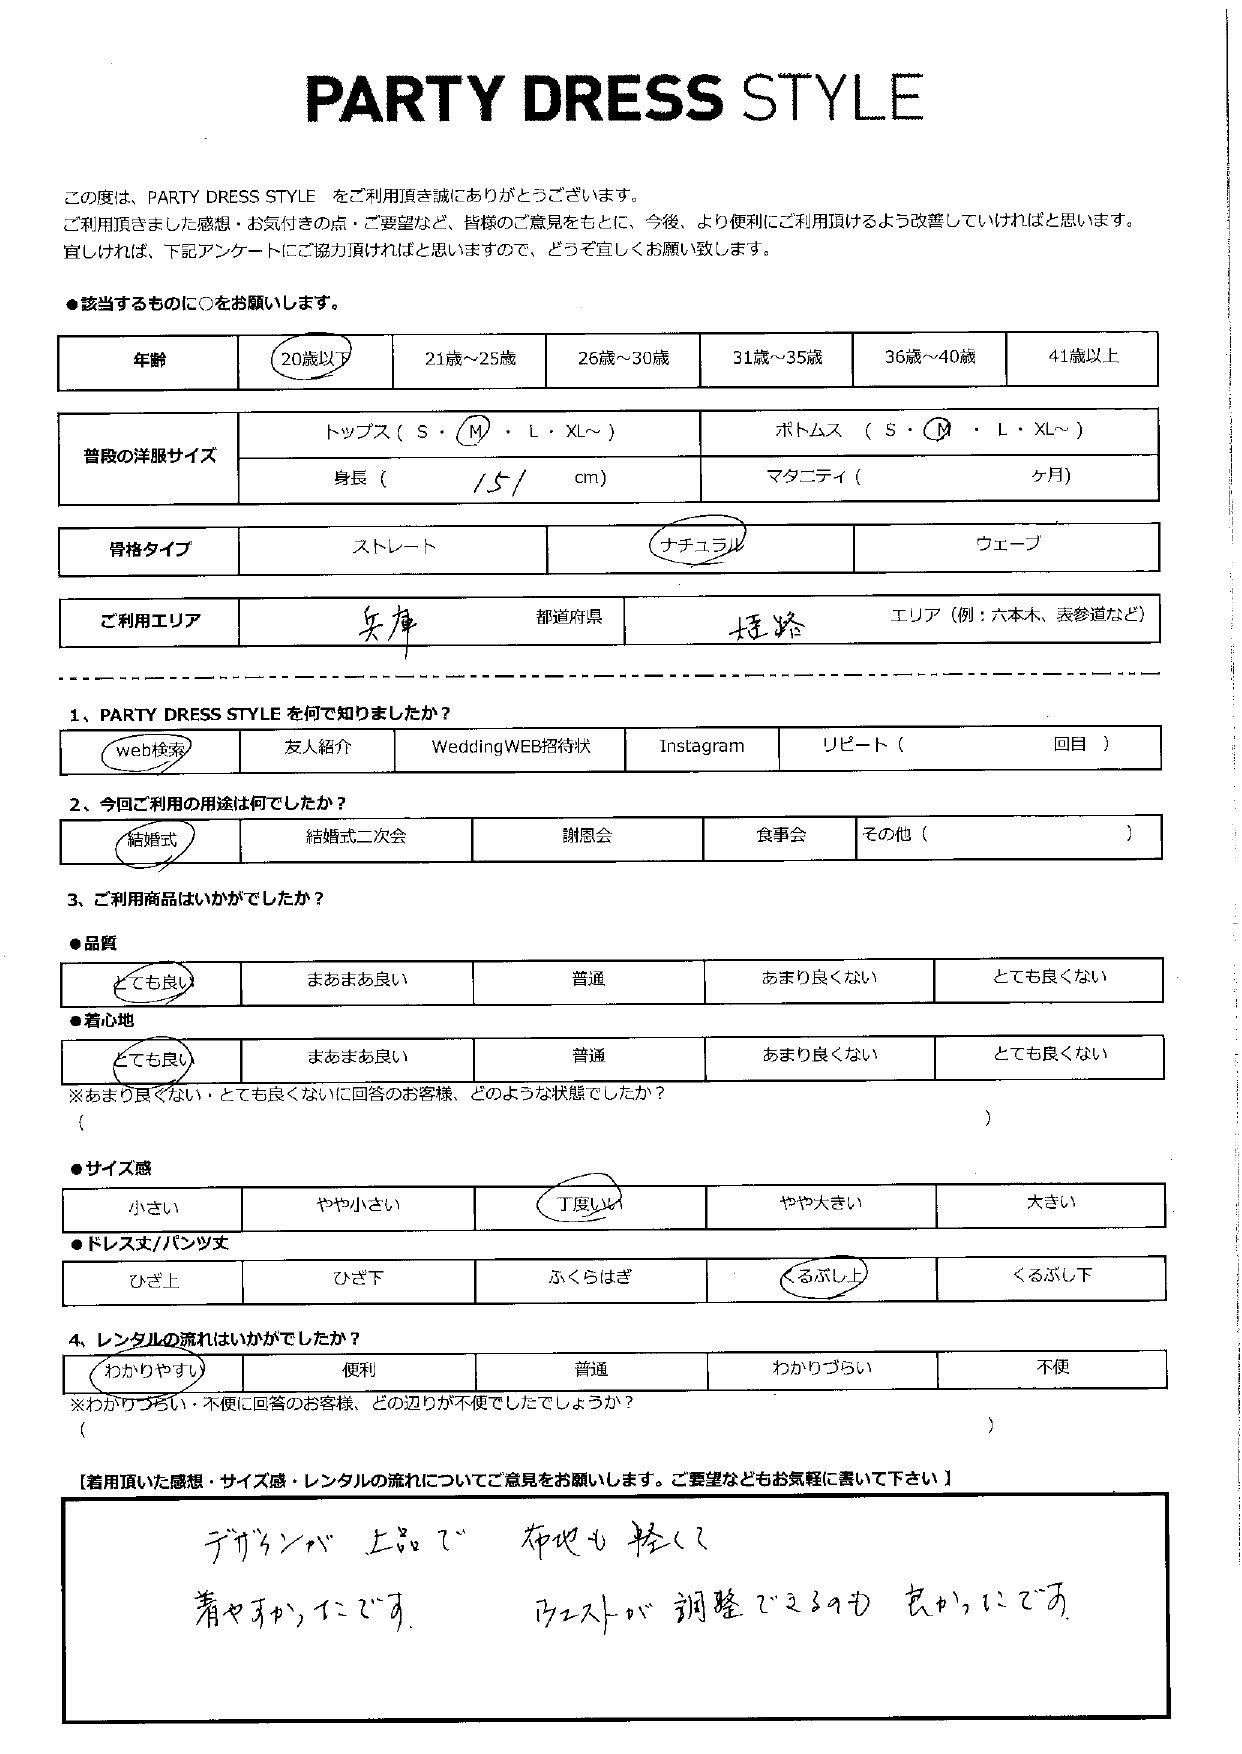 PARTY DRESS STYLE
この度は、PARTY DRESS STYLE をご利用頂き誠にありがとうございます。
ご利用頂きました感想・お気付きの点・ご要望など、皆様のご意見をもとに、今後、より便利にご利用頂けるよう改善していければと思います。
宜しければ、下記アンケートにご協力頂ければと思いますので、どうぞ宜しくお願い致します。
●該当するものに○をお願いします。
年齢 20歳以下 21歳～25歳 26歳～30歳 31歳～35歳 36歳～40歳 41歳以上
普段の洋服サイズ
トップス ( S ・ M ・ L ・ XL～ ) ボトムス ( S ・ M ・ L ・ XL～ )
身長 ( 151 cm) マタニティ ( ケ月)
骨格タイプ ストレート ナチュラル ウェーブ
ご利用エリア 兵庫 都道府県 姫路 エリア（例：六本木、表参道など）
1、PARTY DRESS STYLE を何で知りましたか？
web検索 友人紹介 WeddingWEB招待状 Instagram リピート ( 回目 )
2、今回ご利用の用途は何でしたか？
結婚式 結婚式二次会 謝恩会 食事会 その他 ( )
3、ご利用商品はいかがでしたか？
●品質
とても良い まあまあ良い 普通 あまり良くない とても良くない
●着心地
とても良い まあまあ良い 普通 あまり良くない とても良くない
※あまり良くない・とても良くないに回答のお客様、どのような状態でしたか？
( )
●サイズ感
小さい やや小さい 丁度いい やや大きい 大きい
●ドレス丈/パンツ丈
ひざ上 ひざ下 ふくらはぎ くるぶし上 くるぶし下
4、レンタルの流れはいかがでしたか？
わかりやすい 便利 普通 わかりづらい 不便
※わかりづらい・不便に回答のお客様、どの辺りが不便でしたでしょうか？
( )
【着用頂いた感想・サイズ感・レンタルの流れについてご意見をお願いします。ご要望などもお気軽に書いて下さい 】
デザインが 上品で 布地も 軽くて
着やすかったです. ウエストが 調整できるのも 良かったです.